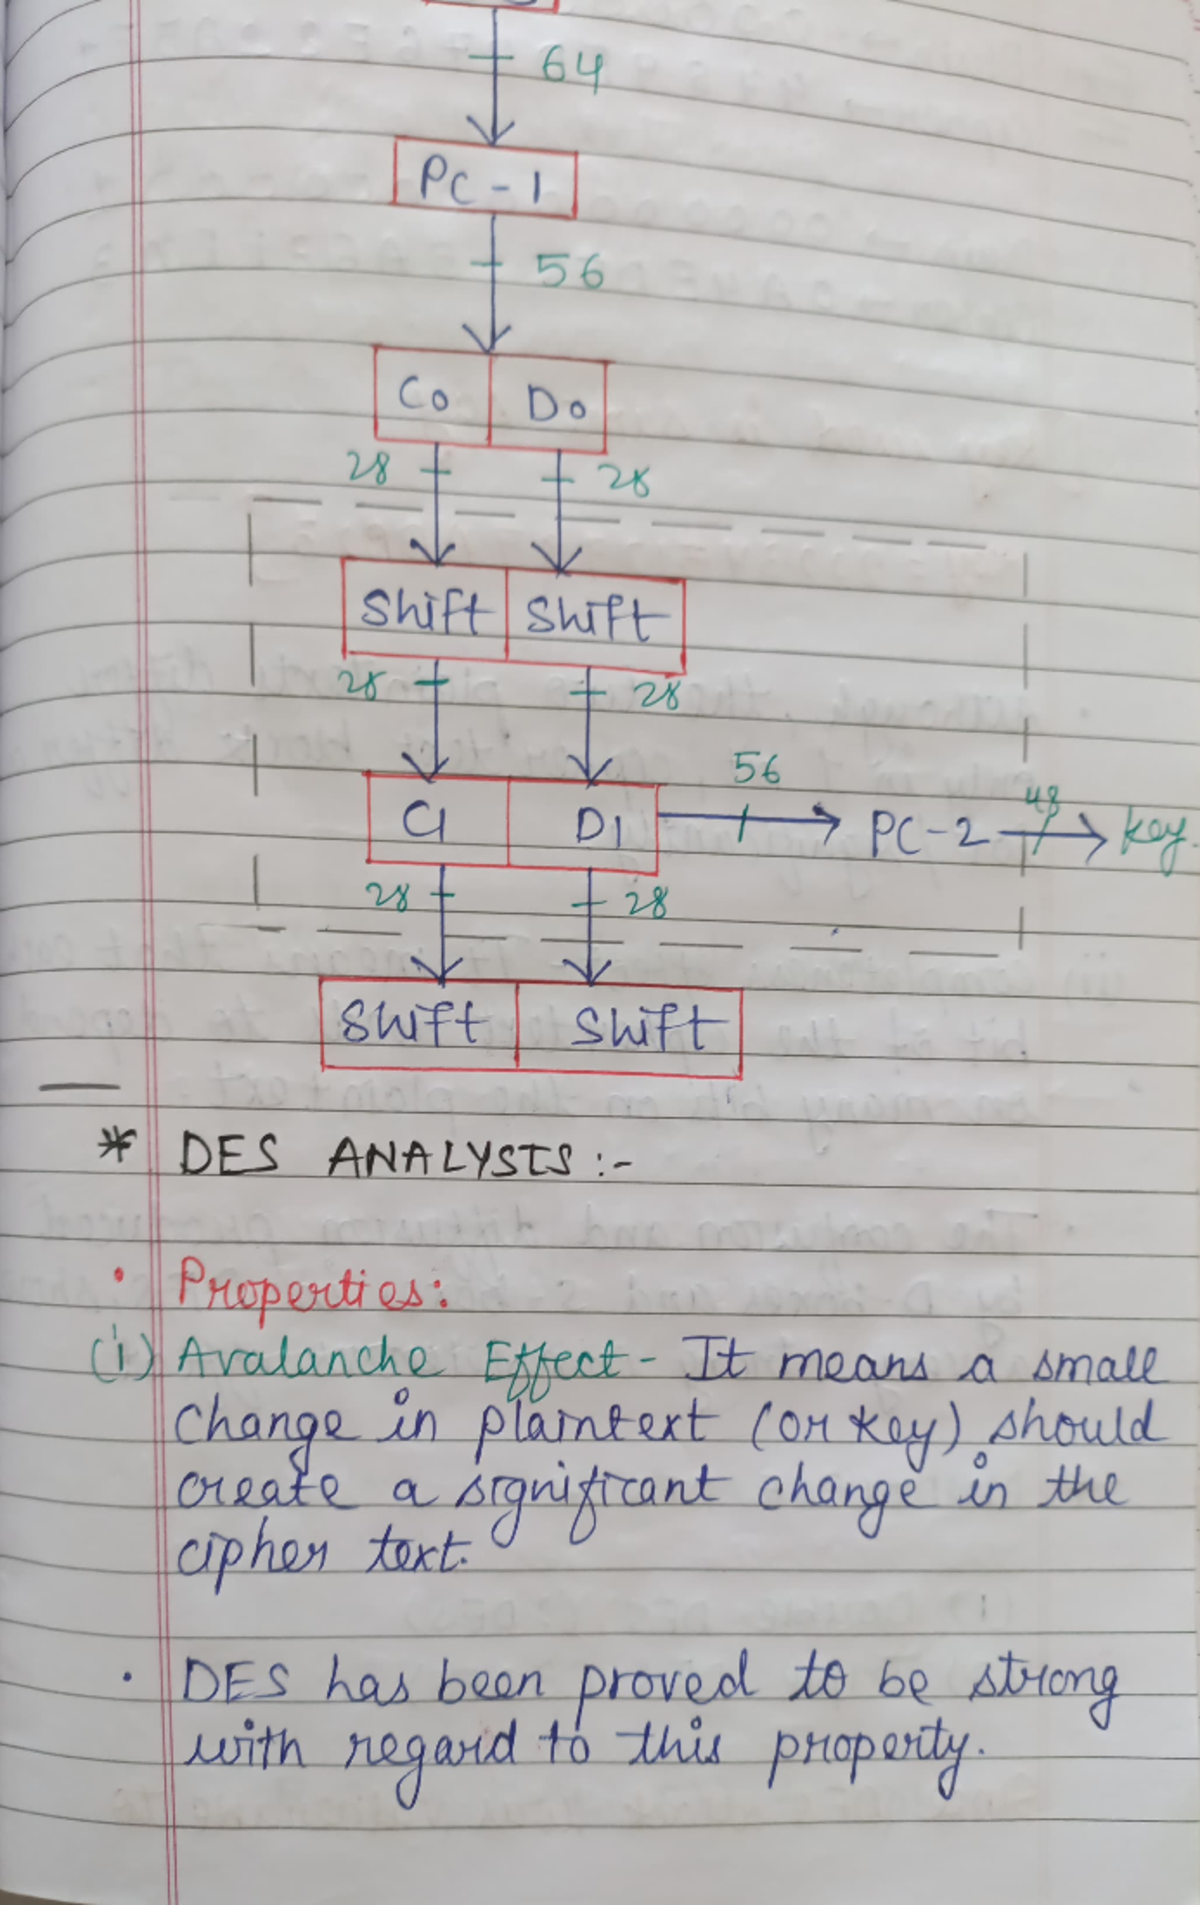 64
PC-1
56
Co Do
28 28
Shift Shift
28 28
C1 D1 56 PC-2 48 key
28 28
Shift Shift
* DES ANALYSIS :-
• Properties:
(i) Avalanche Effect - It means a small
change in plaintext (or key) should
create a significant change in the
cipher text.
• DES has been proved to be strong
with regard to this property.